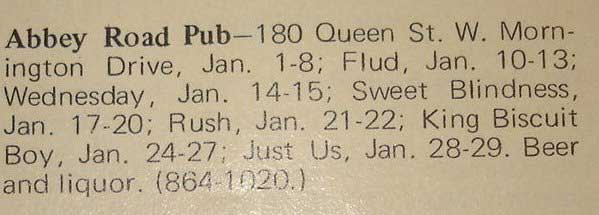 Abbey Road Pub—180 Queen St. W. Morn-
ington Drive, Jan. 1-8; Flud, Jan. 10-13;
Wednesday, Jan. 14-15; Sweet Blindness,
Jan. 17-20; Rush, Jan. 21-22; King Biscuit
Boy, Jan. 24-27; Just Us, Jan. 28-29. Beer
and liquor. (864-1020.)